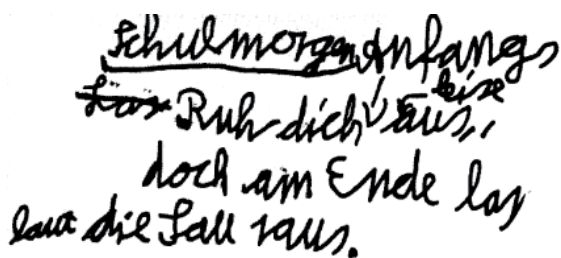 Schulmorgen Anfangs
Ruh dich leise aus,
doch am Ende las
laut die Sau raus.